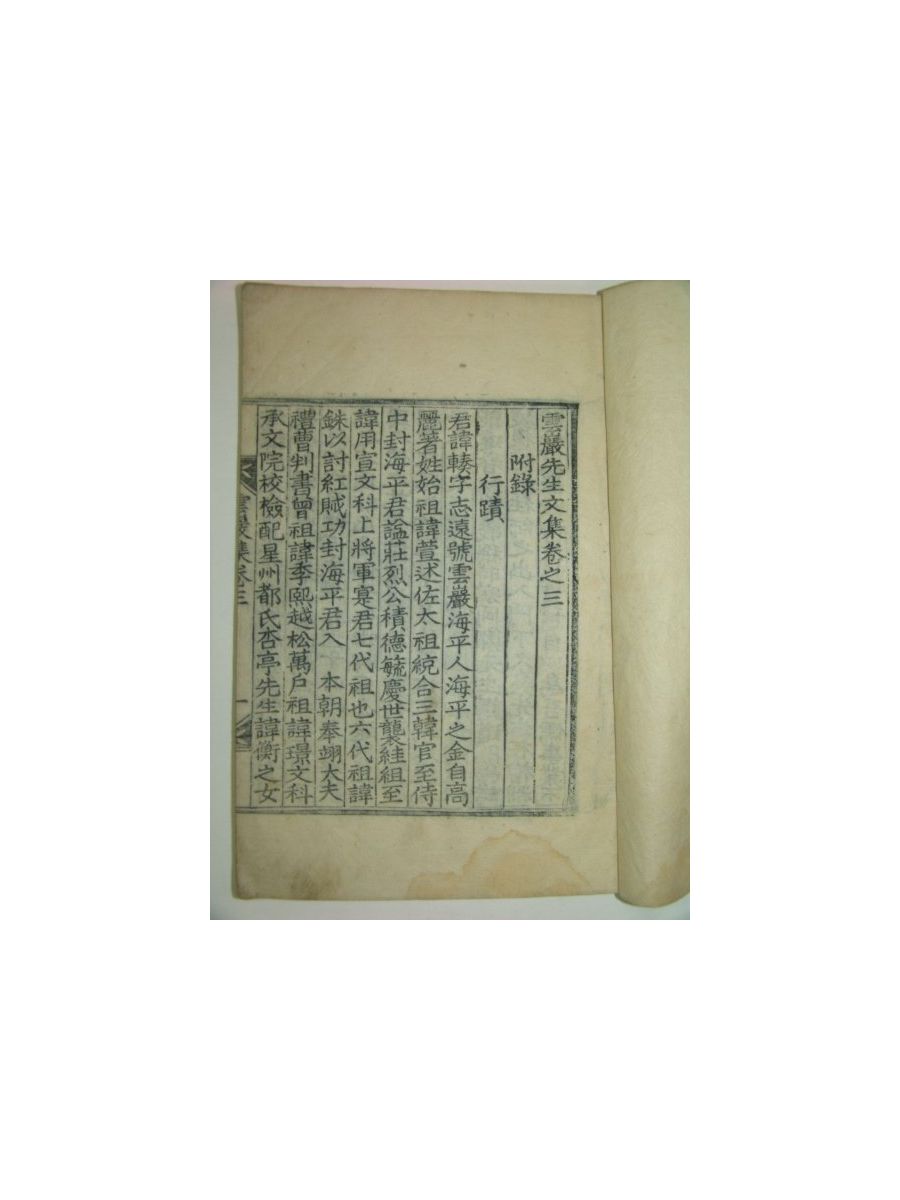 雲巖先生文集卷之三
附錄
行蹟
君諱輳字志遠號雲巖海平人海平之金自高
麗著姓始祖諱萱述佐太祖統合三韓官至侍
中封海平君謚莊烈公積德毓慶世襲絓組至
諱用宣文科上將軍寔君七代祖也六代祖諱
銖以討紅賊功封海平君入 本朝奉翊大夫
禮曹判書曾祖諱季熙越松萬戶祖諱璟文科
承文院校檢配星州都氏杏亭先生諱衡之女
雲巖集卷三 一